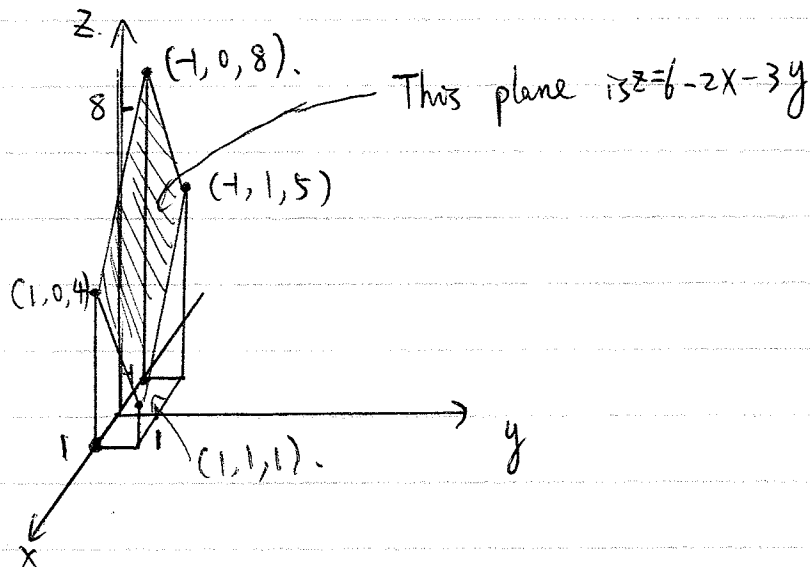 Z
(-1, 0, 8).
8
This plane is z=6-2x-3y
(-1, 1, 5)
(1, 0, 4)
-1
1
1
(1, 1, 1).
y
x